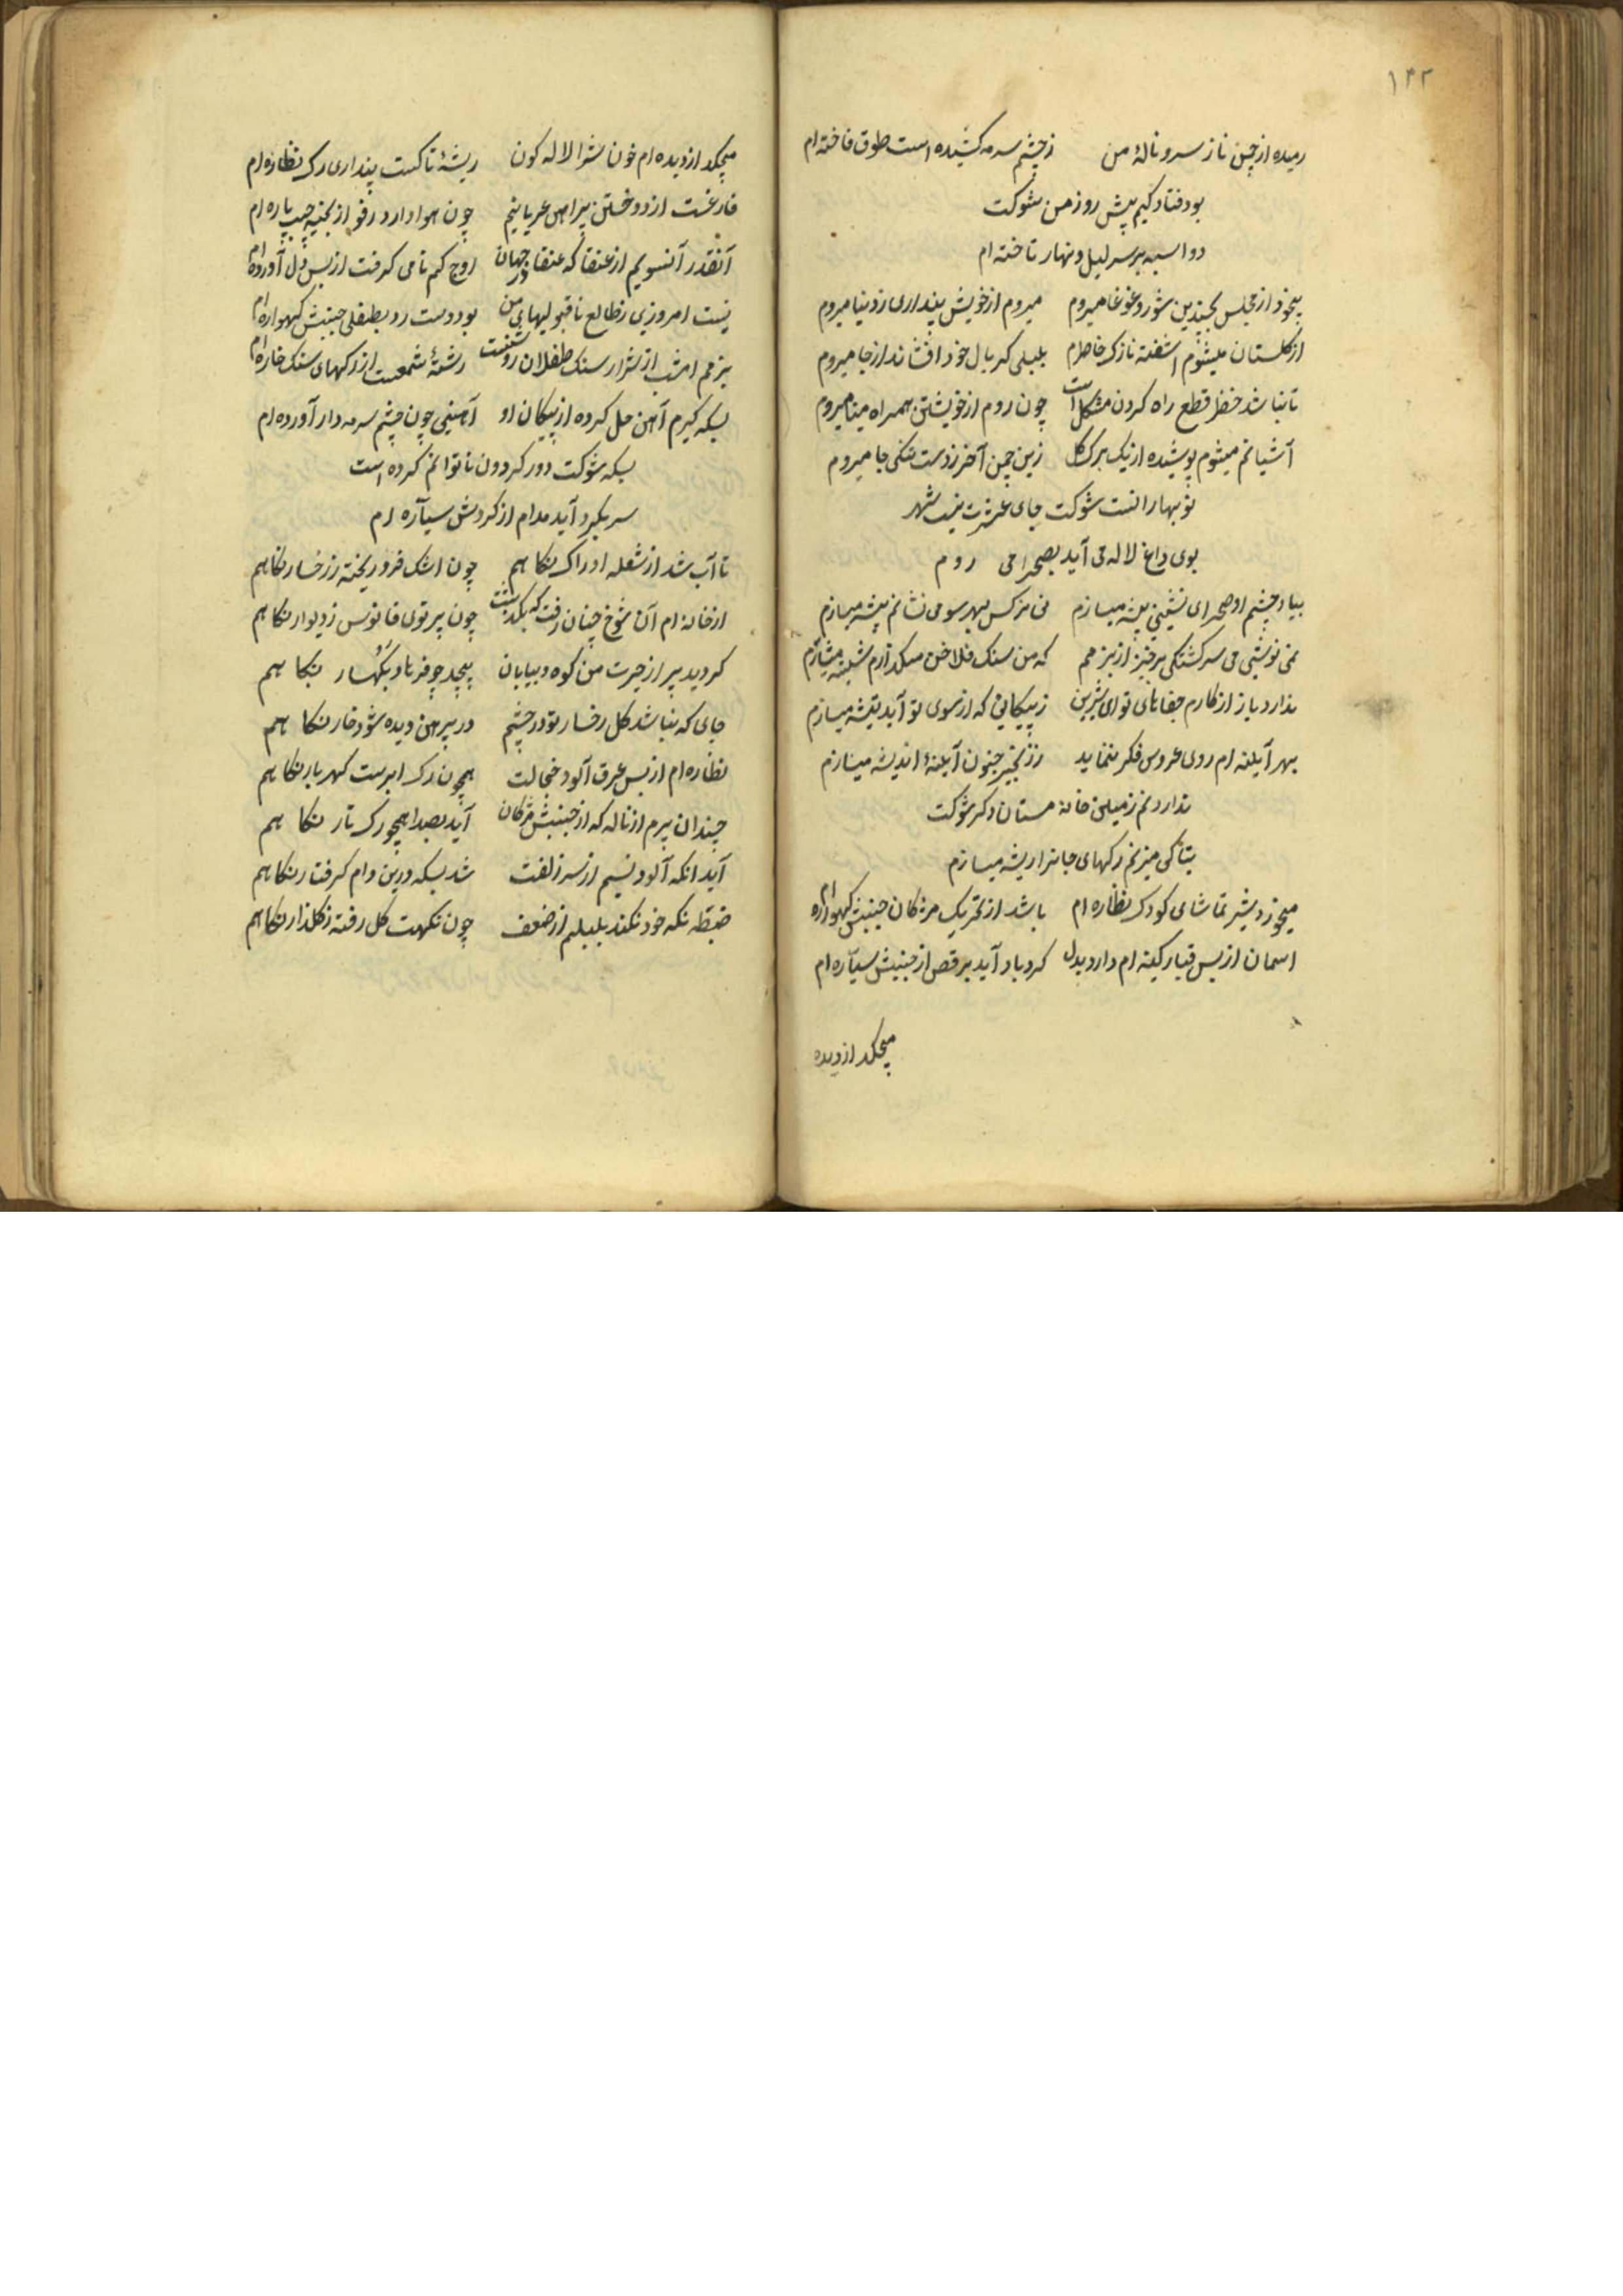 ۱۴۲
رمیده از چمن ناز سرو نالهٔ من زچشم سرمه کشیده است طوق فاخته ام
بود فتادکیم پیش روز من شوکت
دو اسبه بر سر لیل و نهار تاخته ام
بیخود از مجلس بچندین شور و غوغا میروم میروم از خویش پنداری ز دنیا میروم
از کلستان میشوم اشفته نازک خاطرم بلبلی کر بال خود افشاند از جا میروم
تا نباشد خضر قطع راه کردن مشکل است چون روم از خویشتن همراه مینا میروم
آشیانم میشوم پوشیده از یک برک کل زین چمن آخر ز دست تنکی جا میروم
نوبهار انست شوکت جای عشرت نیست شهر
بوی داغ لاله می آید بصحرا می روم
بیاد چشم او صحرای نشینی پیشه میسازم می نرکس بهر سو می نشانم بیشه میسازم
نمی نوشی می سرکشتکی برخیز از بزمم که من سنک فلاخن میکدازم شیشه میسازم
ندارد باز از کارم جفاهای تو ای شیرین ز پیکانی که از سوی تو آید تیشه میسازم
بهر آیینه ام روی عروس فکر ننماید ز زنجیر جنون آیینهٔ اندیشه میسازم
ندارد نم زمین خانه مستان دکر شوکت
بتاکی میزنم رکهای جانرا ریشه میسازم
میخورد شیر تماشای کودک نظاره ام باشد از تحریک مژکان جنبش کهواره ام
اسمان از بس غبار کینه ام دارد بدل کردباد آید برقص از جنبش سیاره ام
میچکد از دیده
میچکد از دیده ام خون شرا لاله کون ریشهٔ تاکست پنداری رک نظاره ام
فارغست از دوختن پیراهن عریانیم چون هوا دارد رفو از بخیه جیب پاره ام
آنقدر آنسویم از عنقا که عنقا در جهان اوج کم نامی کرفت از بس دل آورده ام
نیست امروزی ز طالع ناقبولیهای من بود دست رد بطفلی جنبش کهواره ام
بزمم امشب از شرار سنک طفلان روشنست رشتهٔ شمعست از رکهای سنک خاره ام
بسکه کیرم آهن حل کرده از پیکان او آهنی چون چشم سرمه دار آورده ام
بسکه شوکت دور کردون ناتوانم کرده است
سر بکرد آید مدام از کردش سیاره ام
تا آب شد از شعله ادراک نکاهم چون اشک فرو ریخته ز رخسار نکاهم
از خانه ام آن شوخ چنان رفت که بکذشت چون پرتوی فانوس ز دیوار نکاهم
کردید پر از حیرت من کوه و بیابان پیچد چو فرهاد بکهسار نکاهم
جای که نباشد کل رخسار تو در چشم در پیرهن دیده شود خار نکاهم
نظاره ام از بس عرق آلود خجالت همچون رک ابرست کهربار نکاهم
چندان پرم از ناله که از جنبش مژکان آید بصدا همچو رک تار نکاهم
آید نکه آلود نسیم از سر زلفت شد بسکه درین دام کرفتار نکاهم
ضبط نکه خود نکند بلبلم از ضعف چون نکهت کل رفته ز کلزار نکاهم